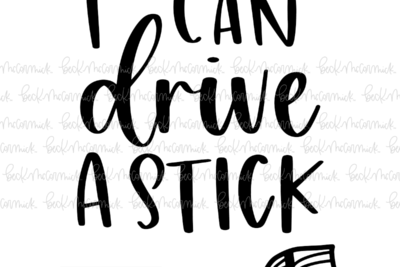 I CAN
drive
A STICK